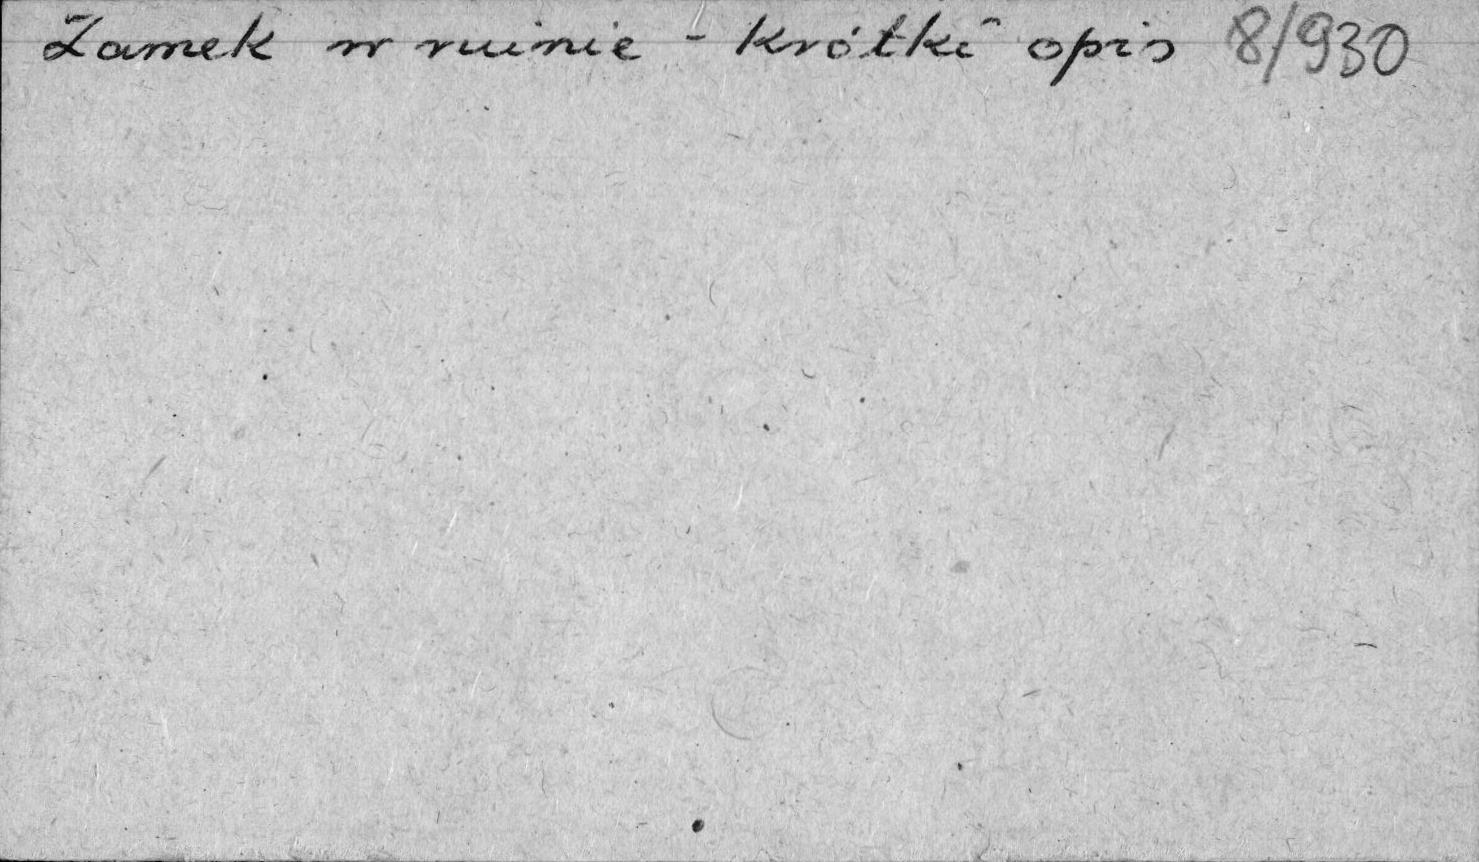 Zamek w ruinie - krótki opis 8/930